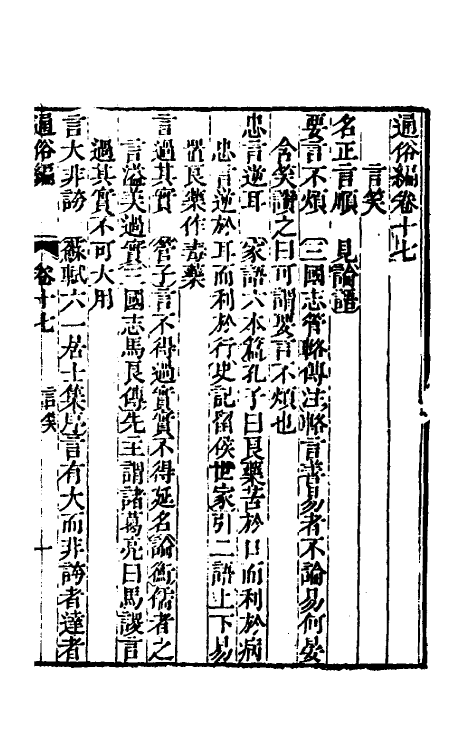 通俗編卷十七
言笑
名正言順　見論語
要言不煩　三國志管輅傳注輅言善易者不論易何晏
含笑讚之曰可謂要言不煩也
忠言逆耳　家語六本篇孔子曰良藥苦於口而利於病
忠言逆於耳而利於行史記留侯世家引二語上下易
置良藥作毒藥
言過其實　管子言不得過實實不得延名論衡儒者之
言溢美過實三國志馬良傳先主謂諸葛亮曰馬謖言
過其實不可大用
言大非誇　蘇軾六一居士集序言有大而非誇者達者
通俗編　卷十七　言笑　一